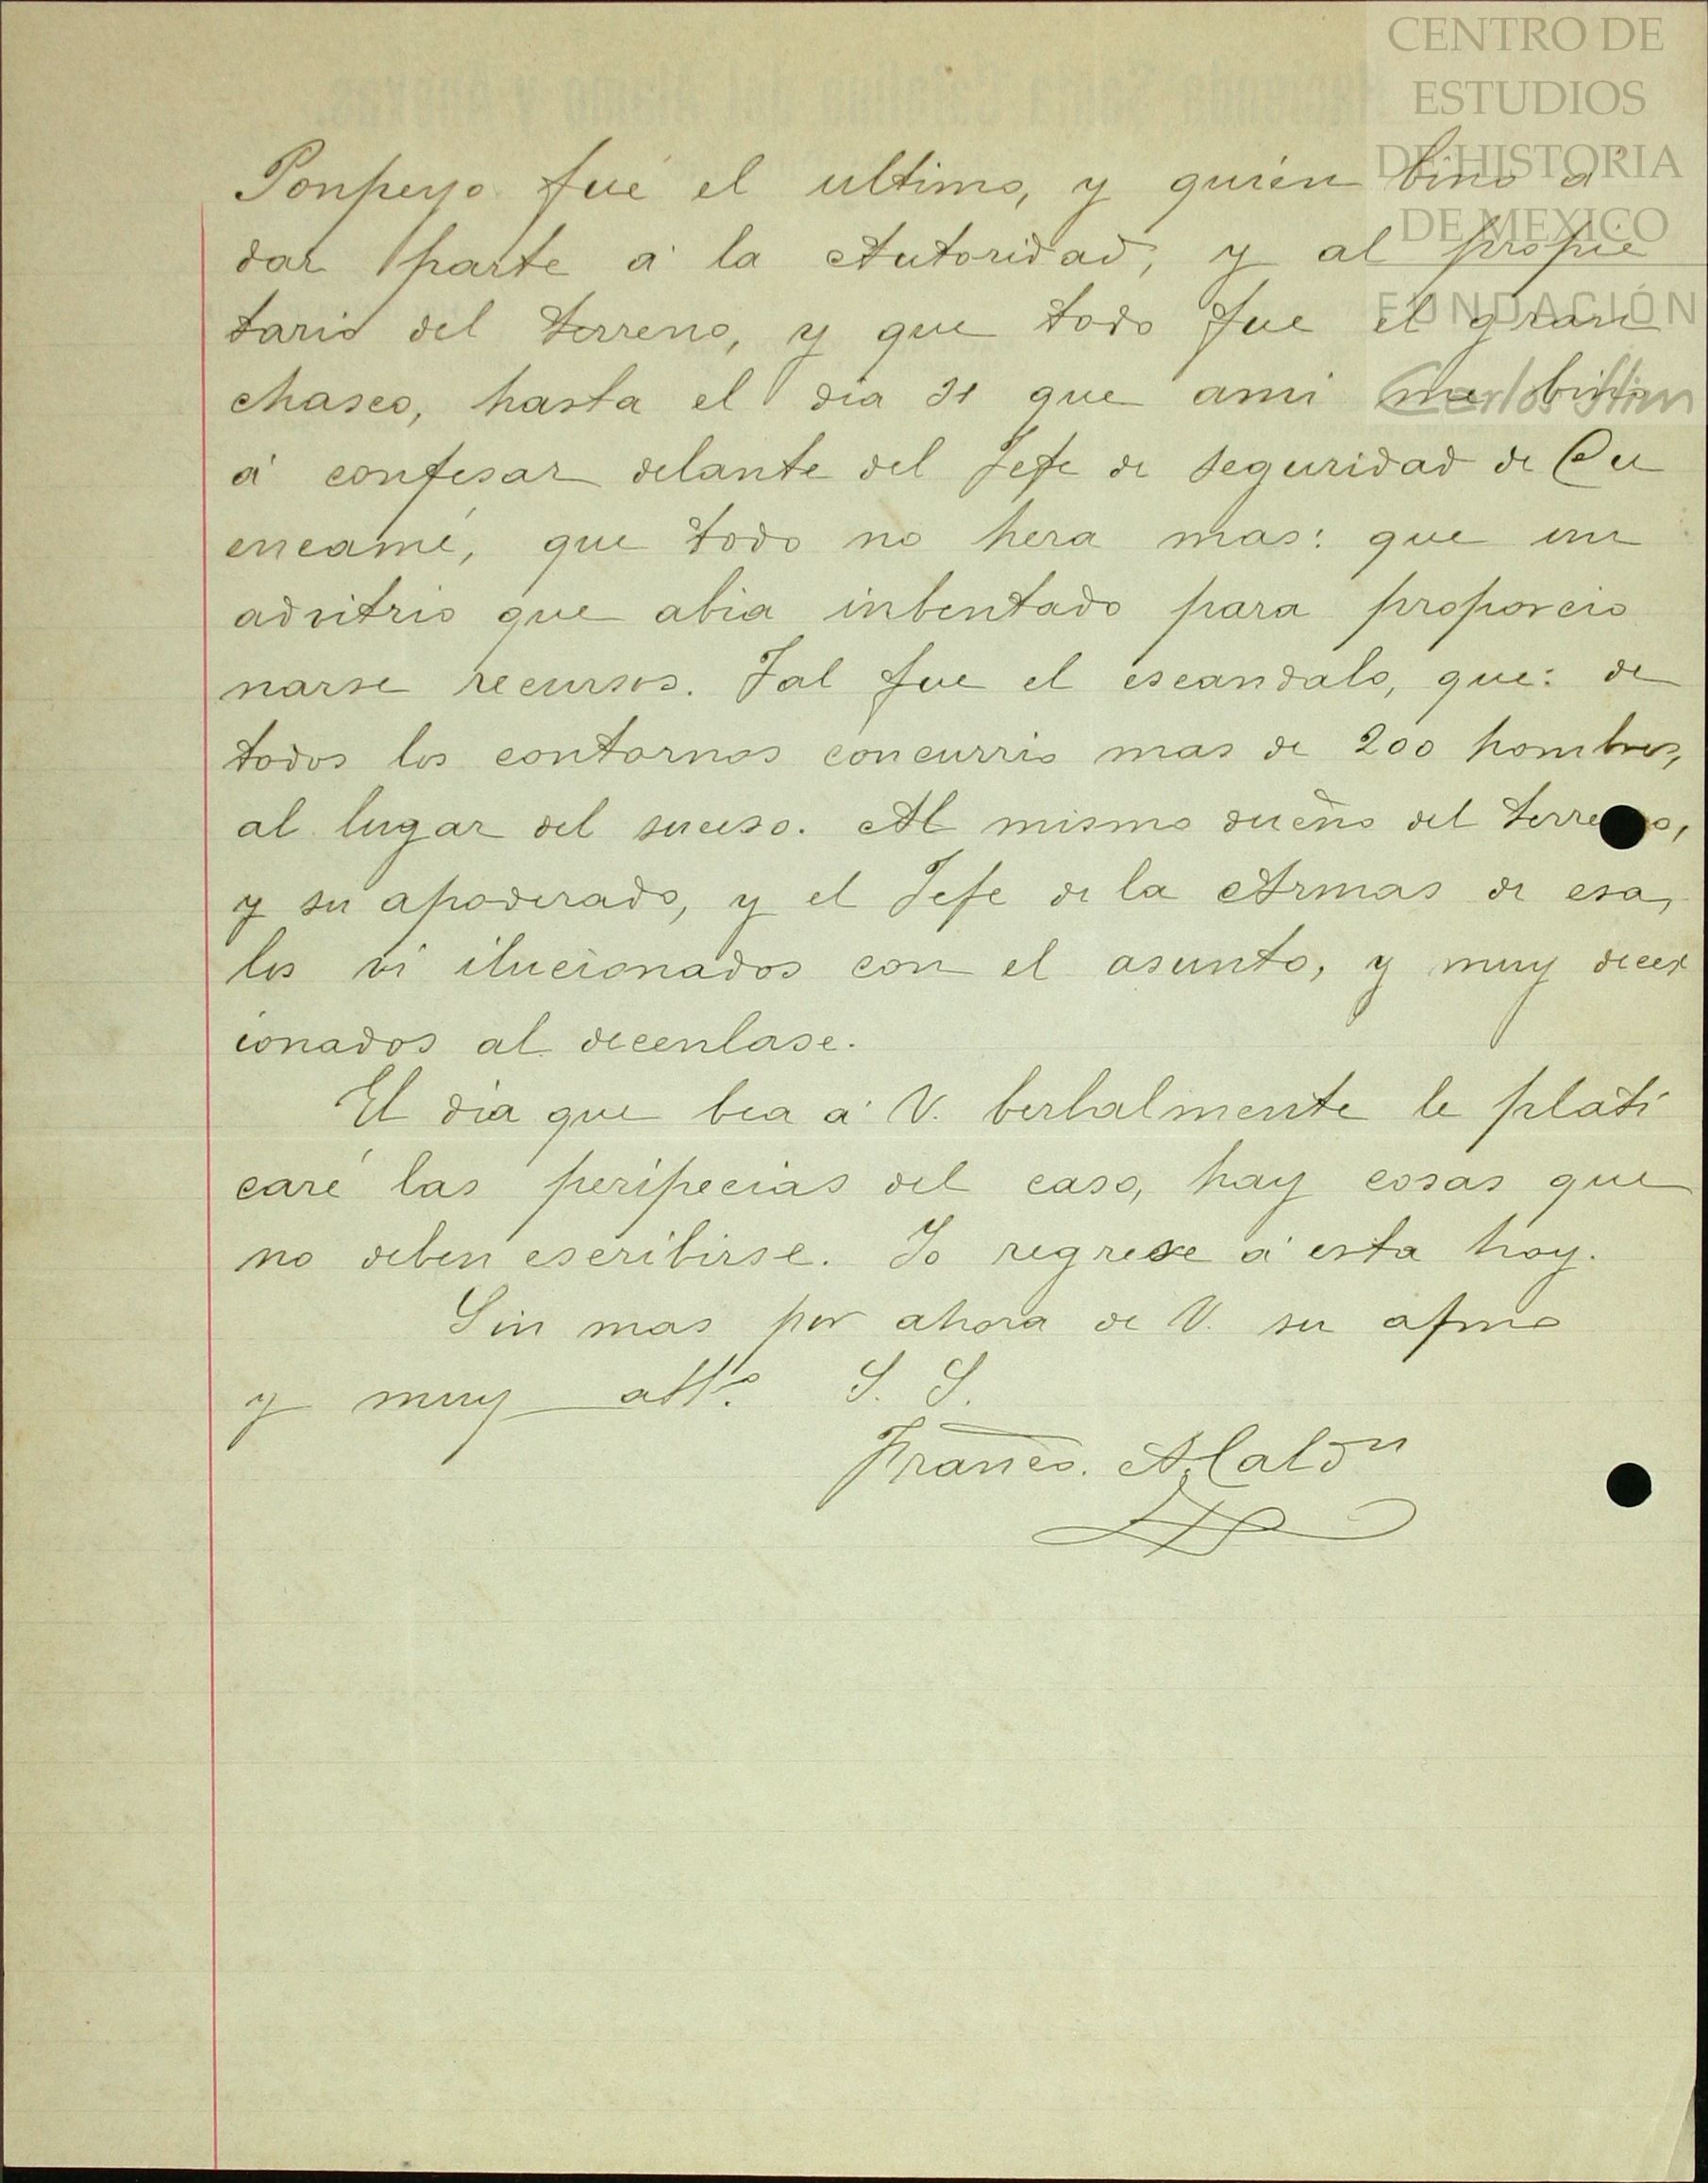 CENTRO DE
ESTUDIOS
DE HISTORIA
DE MEXICO
FUNDACIÓN
Carlos Slim
Ponpeyo fué el ultimo, y quién bino á
dar parte á la Autoridad, y al propie
tario del terreno, y que todo fue el gran
chasco, hasta el dia 31 que ami me bino
á confesar delante del Jefe de Seguridad de Cu
encamé, que todo no hera mas: que un
advitrio que abia inbentado para proporcio
narse recursos. Tal fue el escandalo, que: de
todos los contornos concurrio mas de 200 hombres,
al lugar del suceso. Al mismo dueño del terreno,
y su apoderado, y el Jefe de la Armas de esa,
los vi ilucionados con el asunto, y muy decex
ionados al decenlase.
El dia que bea á V. berbalmente le plati
caré las peripecias del caso, hay cosas que
no deben escribirse. Yo regrese á esta hoy.
Sin mas por ahora de V. su afmo
y muy atto. S. S.
Franco. A. Caldn